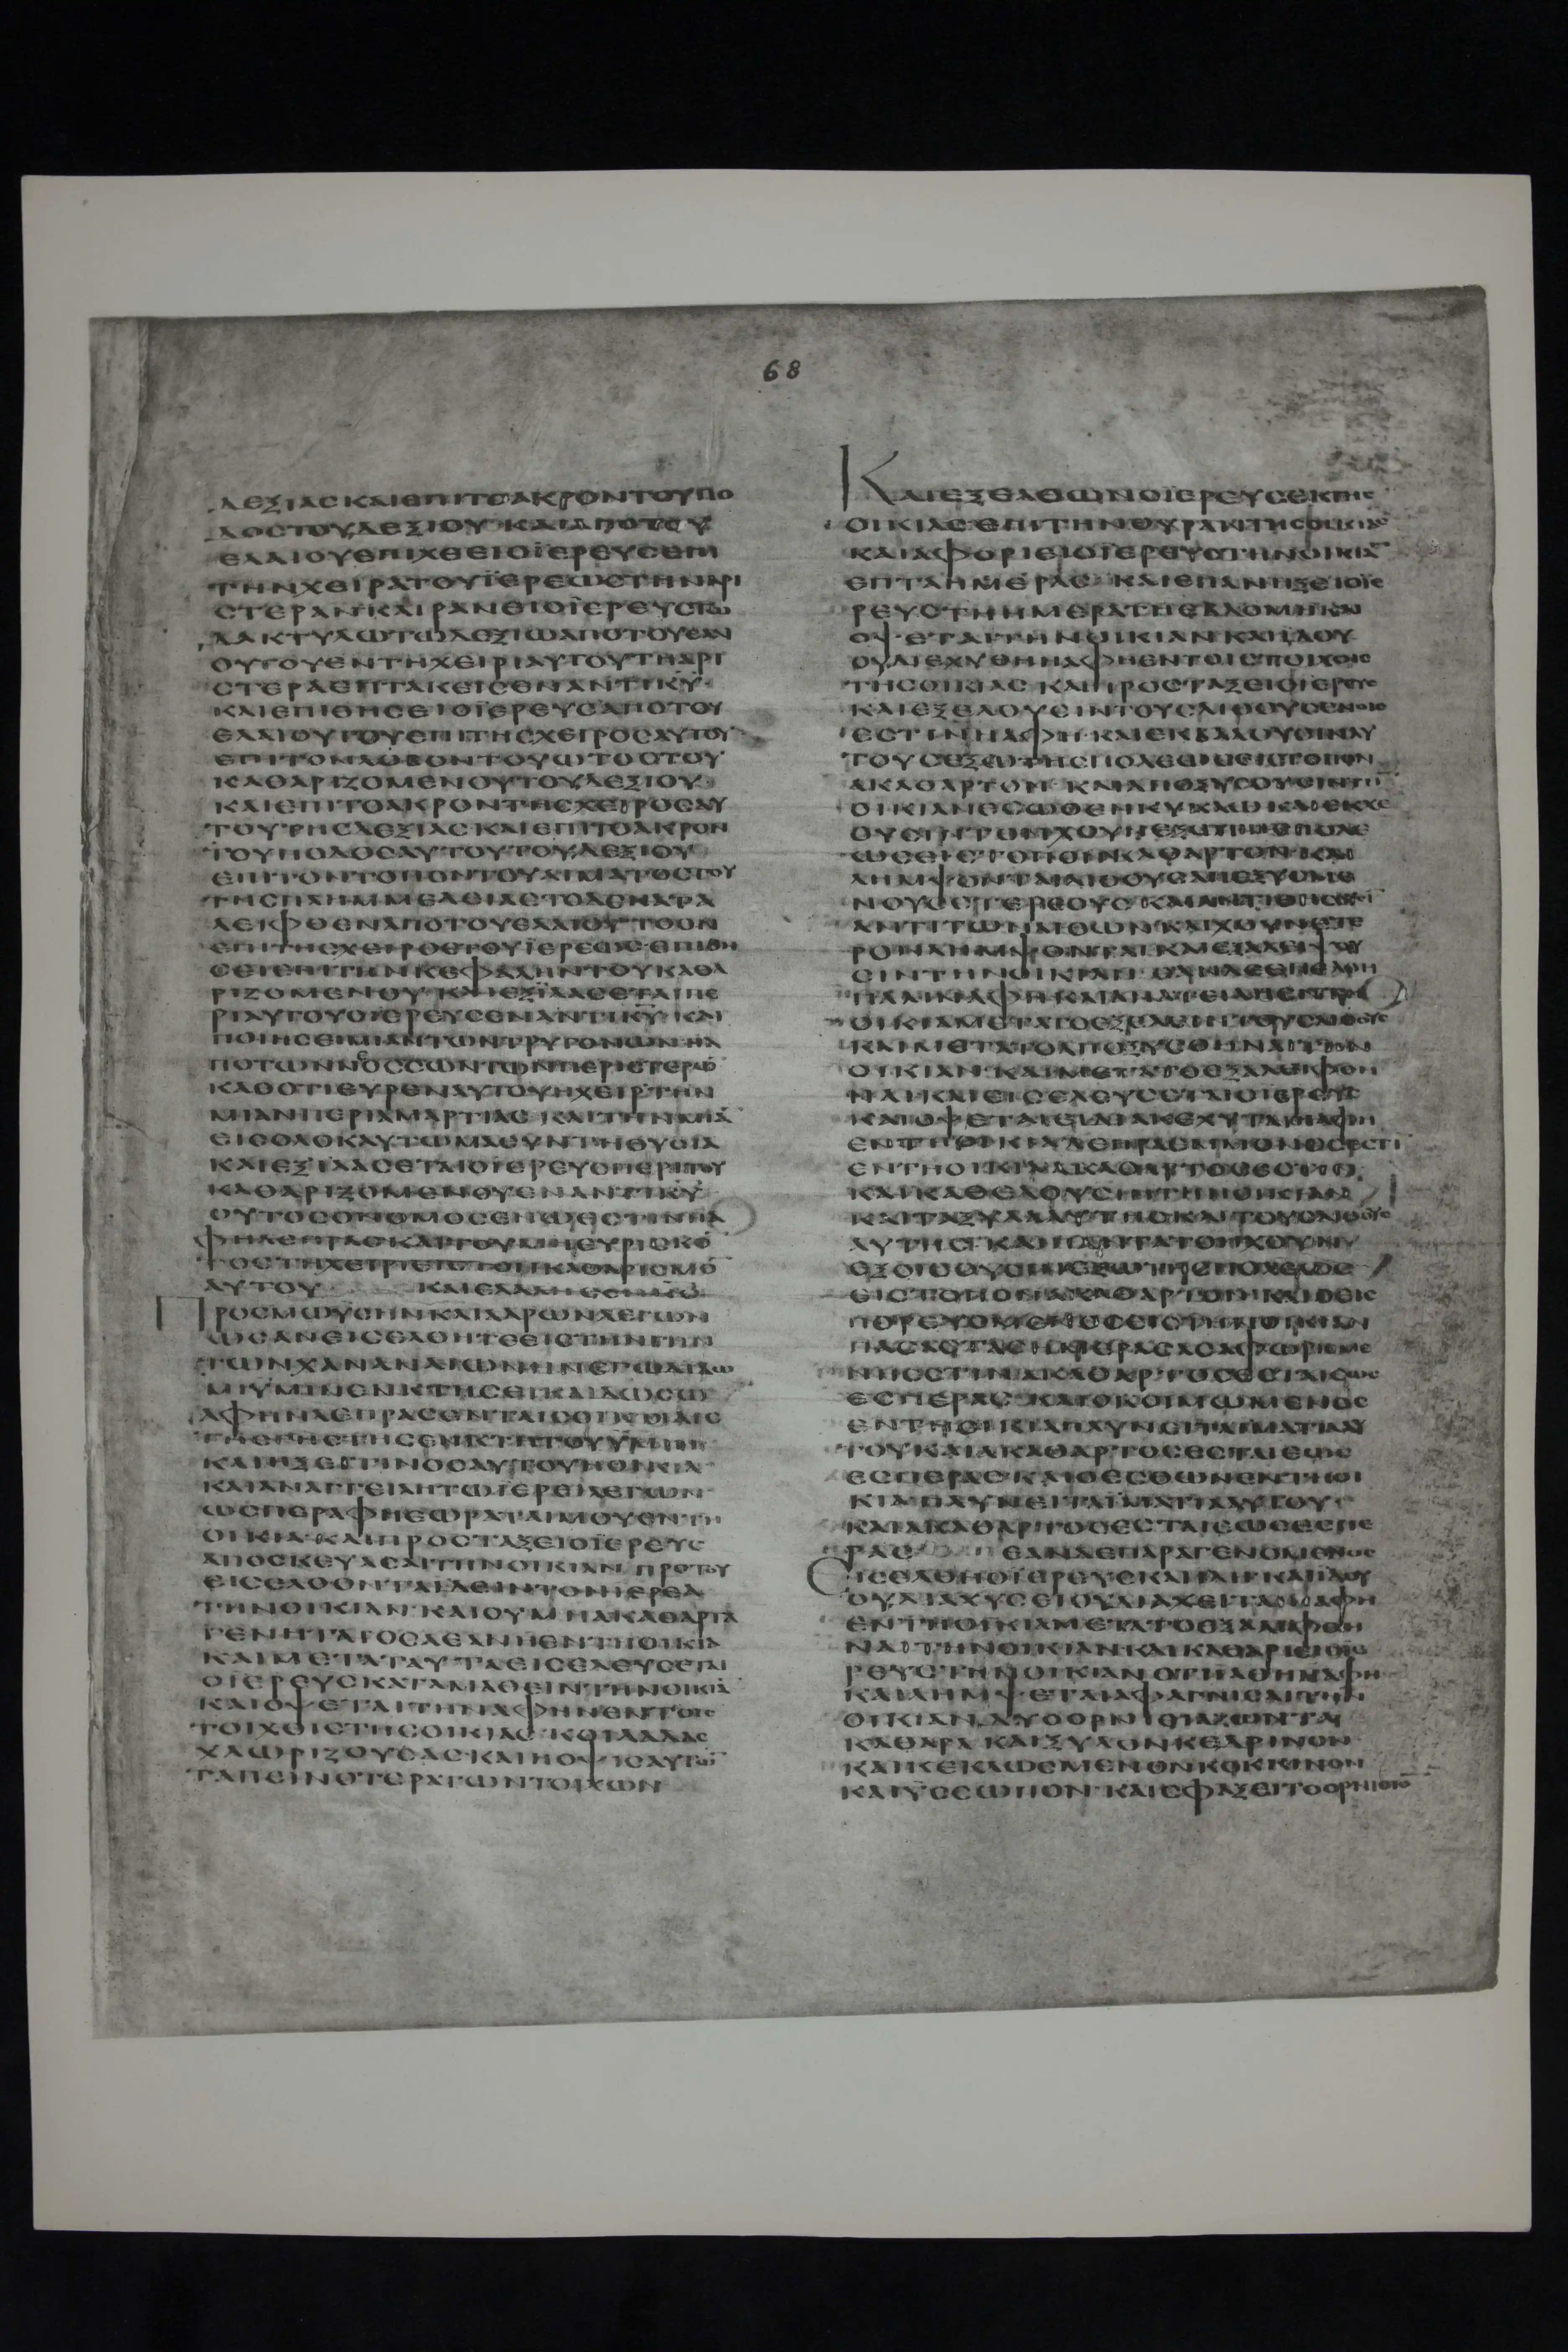 68
ΔΕΞΙΑΣ ΚΑΙ ΕΠΙ ΤΟ ΑΚΡΟΝ ΤΟΥ ΠΟ
ΔΟΣ ΤΟΥ ΔΕΞΙΟΥ ΚΑΙ ΑΠΟ ΤΟΥ
ΕΛΑΙΟΥ ΕΠΙΧΕΕΙ Ο ΪΕΡΕΥΣ ΕΠΙ
ΤΗΝ ΧΕΙΡΑ ΤΟΥ ΪΕΡΕΩΣ ΤΗΝ ΑΡΙ
ΣΤΕΡΑΝ ΚΑΙ ΡΑΝΕΙ Ο ΪΕΡΕΥΣ ΤΩ
ΔΑΚΤΥΛΩ ΤΩ ΔΕΞΙΩ ΑΠΟ ΤΟΥ ΕΛΑΙ
ΟΥ ΤΟΥ ΕΝ ΤΗ ΧΕΙΡΙ ΑΥΤΟΥ ΤΗ ΑΡΙ
ΣΤΕΡΑ ΕΠΤΑΚΕΙΣ ΕΝΑΝΤΙ ΚΥ
ΚΑΙ ΕΠΙΘΗΣΕΙ Ο ΪΕΡΕΥΣ ΑΠΟ ΤΟΥ
ΕΛΑΙΟΥ ΤΟΥ ΕΠΙ ΤΗΣ ΧΕΙΡΟΣ ΑΥΤΟΥ
ΕΠΙ ΤΟΝ ΛΟΒΟΝ ΤΟΥ ΩΤΟΣ ΤΟΥ
ΚΑΘΑΡΙΖΟΜΕΝΟΥ ΤΟΥ ΔΕΞΙΟΥ
ΚΑΙ ΕΠΙ ΤΟ ΑΚΡΟΝ ΤΗΣ ΧΕΙΡΟΣ ΑΥ
ΤΟΥ ΤΗΣ ΔΕΞΙΑΣ ΚΑΙ ΕΠΙ ΤΟ ΑΚΡΟΝ
ΤΟΥ ΠΟΔΟΣ ΑΥΤΟΥ ΤΟΥ ΔΕΞΙΟΥ
ΕΠΙ ΤΟΝ ΤΟΠΟΝ ΤΟΥ ΑΙΜΑΤΟΣ ΤΟΥ
ΤΗΣ ΠΛΗΜΜΕΛΕΙΑΣ ΤΟ ΔΕ ΚΑΤΑ
ΛΕΙΦΘΕΝ ΑΠΟ ΤΟΥ ΕΛΑΙΟΥ ΤΟ ΟΝ
ΕΠΙ ΤΗΣ ΧΕΙΡΟΣ ΤΟΥ ΪΕΡΕΩΣ ΕΠΙΘΗ
ΣΕΙ ΕΠΙ ΤΗΝ ΚΕΦΑΛΗΝ ΤΟΥ ΚΑΘΑ
ΡΙΖΟΜΕΝΟΥ ΚΑΙ ΕΞΪΛΑΣΕΤΑΙ ΠΕ
ΡΙ ΑΥΤΟΥ Ο ΪΕΡΕΥΣ ΕΝΑΝΤΙ ΚΥ ΚΑΙ
ΠΟΙΗΣΕΙ ΜΙΑΝ ΤΩΝ ΤΡΥΓΟΝΩΝ Η Α
ΠΟ ΤΩΝ ΝΟΣΣΩΝ ΤΩΝ ΠΕΡΙΣΤΕΡΩ
ΚΑΘΟΤΙ ΕΥΡΕΝ ΑΥΤΟΥ Η ΧΕΙΡ ΤΗΝ
ΜΙΑΝ ΠΕΡΙ ΑΜΑΡΤΙΑΣ ΚΑΙ ΤΗΝ ΜΙΑ
ΕΙΣ ΟΛΟΚΑΥΤΩΜΑ ΣΥΝ ΤΗ ΘΥΣΙΑ
ΚΑΙ ΕΞΪΛΑΣΕΤΑΙ Ο ΪΕΡΕΥΣ ΠΕΡΙ ΤΟΥ
ΚΑΘΑΡΙΖΟΜΕΝΟΥ ΕΝΑΝΤΙ ΚΥ
ΟΥΤΟΣ Ο ΝΟΜΟΣ ΕΝ Ω ΕΣΤΙΝ Η Α
ΦΗ ΛΕΠΡΑΣ ΚΑΙ ΤΟΥ ΜΗ ΕΥΡΙΣΚΟ
ΤΟΣ ΤΗ ΧΕΙΡΙ ΕΙΣ ΤΟΝ ΚΑΘΑΡΙΣΜΟ
ΑΥΤΟΥ ΚΑΙ ΕΛΑΛΗΣΕΝ ΚΣ
ΠΡΟΣ ΜΩΥΣΗΝ ΚΑΙ ΑΑΡΩΝ ΛΕΓΩΝ
ΩΣ ΑΝ ΕΙΣΕΛΘΗΤΕ ΕΙΣ ΤΗΝ ΓΗΝ
ΤΩΝ ΧΑΝΑΝΑΙΩΝ ΗΝ ΕΓΩ ΔΙΔΩ
ΜΙ ΥΜΙΝ ΕΝ ΚΤΗΣΕΙ ΚΑΙ ΔΩΣΩ
ΑΦΗΝ ΛΕΠΡΑΣ ΕΝ ΤΑΙΣ ΟΙΚΙΑΙΣ
ΤΗΣ ΓΗΣ ΤΗΣ ΕΝΚΤΗΤΟΥ ΫΜΙΝ
ΚΑΙ ΗΞΕΙ ΤΙΝΟΣ ΑΥΤΟΥ Η ΟΙΚΙΑ
ΚΑΙ ΑΝΑΓΓΕΙΛΗ ΤΩ ΪΕΡΕΙ ΛΕΓΩΝ
ΩΣΠΕΡ ΑΦΗ ΕΩΡΑΤΑΙ ΜΟΥ ΕΝ ΤΗ
ΟΙΚΙΑ ΚΑΙ ΠΡΟΣΤΑΞΕΙ Ο ΪΕΡΕΥΣ
ΑΠΟΣΚΕΥΑΣΑΙ ΤΗΝ ΟΙΚΙΑΝ ΠΡΟ ΤΟΥ
ΕΙΣΕΛΘΟΝΤΑ ΪΔΕΙΝ ΤΟΝ ΪΕΡΕΑ
ΤΗΝ ΟΙΚΙΑΝ ΚΑΙ ΟΥ ΜΗ ΑΚΑΘΑΡΤΑ
ΓΕΝΗΤΑΙ ΟΣΑ ΕΑΝ Η ΕΝ ΤΗ ΟΙΚΙΑ
ΚΑΙ ΜΕΤΑ ΤΑΥΤΑ ΕΙΣΕΛΕΥΣΕΤΑΙ
Ο ΪΕΡΕΥΣ ΚΑΤΑΜΑΘΕΙΝ ΤΗΝ ΟΙΚΙΑ
ΚΑΙ ΟΨΕΤΑΙ ΤΗΝ ΑΦΗΝ ΕΝ ΤΟΙΣ
ΤΟΙΧΟΙΣ ΤΗΣ ΟΙΚΙΑΣ ΚΟΙΛΑΔΑΣ
ΧΛΩΡΙΖΟΥΣΑΣ ΚΑΙ Η ΟΨΙΣ ΑΥΤΩ
ΤΑΠΕΙΝΟΤΕΡΑ ΤΩΝ ΤΟΙΧΩΝ
ΚΑΙ ΕΞΕΛΘΩΝ Ο ΪΕΡΕΥΣ ΕΚ ΤΗΣ
ΟΙΚΙΑΣ ΕΠΙ ΤΗΝ ΘΥΡΑΝ ΤΗΣ ΟΙΚΙΑΣ
ΚΑΙ ΑΦΟΡΙΕΙ Ο ΪΕΡΕΥΣ ΤΗΝ ΟΙΚΙΑ
ΕΠΤΑ ΗΜΕΡΑΣ ΚΑΙ ΕΠΑΝΗΞΕΙ Ο ΪΕ
ΡΕΥΣ ΤΗ ΗΜΕΡΑ ΤΗ ΕΒΔΟΜΗ ΚΑΙ
ΟΨΕΤΑΙ ΤΗΝ ΟΙΚΙΑΝ ΚΑΙ ΪΔΟΥ
ΟΥ ΔΙΕΧΥΘΗ Η ΑΦΗ ΕΝ ΤΟΙΣ ΤΟΙΧΟΙΣ
ΤΗΣ ΟΙΚΙΑΣ ΚΑΙ ΠΡΟΣΤΑΞΕΙ Ο ΪΕΡΕΥΣ
ΚΑΙ ΕΞΕΛΟΥΣΙΝ ΤΟΥΣ ΛΙΘΟΥΣ ΕΝ ΟΙΣ
ΕΣΤΙΝ Η ΑΦΗ ΚΑΙ ΕΚΒΑΛΟΥΣΙΝ ΑΥ
ΤΟΥΣ ΕΞΩ ΤΗΣ ΠΟΛΕΩΣ ΕΙΣ ΤΟΠΟΝ
ΑΚΑΘΑΡΤΟΝ ΚΑΙ ΑΠΟΞΥΣΟΥΣΙΝ ΤΗ
ΟΙΚΙΑΝ ΕΣΩΘΕΝ ΚΥΚΛΩ ΚΑΙ ΕΚΧΕ
ΟΥΣΙΝ ΤΟΝ ΧΟΥΝ ΕΞΩ ΤΗΣ ΠΟΛΕ
ΩΣ ΕΙΣ ΤΟΠΟΝ ΑΚΑΘΑΡΤΟΝ ΚΑΙ
ΛΗΜΨΟΝΤΑΙ ΛΙΘΟΥΣ ΑΠΕΞΥΣΜΕ
ΝΟΥΣ ΕΤΕΡΟΥΣ ΚΑΙ ΑΝΤΙΘΗΣΟΥΣΙ
ΑΝΤΙ ΤΩΝ ΛΙΘΩΝ ΚΑΙ ΧΟΥΝ ΕΤΕ
ΡΟΝ ΛΗΜΨΟΝΤΑΙ ΚΑΙ ΕΞΑΛΕΙΨΟΥ
ΣΙΝ ΤΗΝ ΟΙΚΙΑΝ ΕΑΝ ΔΕ ΕΠΕΛΘΗ
ΠΑΛΙΝ ΑΦΗ ΚΑΙ ΑΝΑΤΕΙΛΗ ΕΝ ΤΗ
ΟΙΚΙΑ ΜΕΤΑ ΤΟ ΕΞΕΛΕΙΝ ΤΟΥΣ ΛΙΘΟΥΣ
ΚΑΙ ΜΕΤΑ ΤΟ ΑΠΟΞΥΣΘΗΝΑΙ ΤΗΝ
ΟΙΚΙΑΝ ΚΑΙ ΜΕΤΑ ΤΟ ΕΞΑΛΙΦΘΗ
ΝΑΙ ΚΑΙ ΕΙΣΕΛΕΥΣΕΤΑΙ Ο ΪΕΡΕΥΣ
ΚΑΙ ΟΨΕΤΑΙ ΕΙ ΔΙΑΚΕΧΥΤΑΙ Η ΑΦΗ
ΕΝ ΤΗ ΟΙΚΙΑ ΛΕΠΡΑ ΕΜΜΟΝΟΣ ΕΣΤΙ
ΕΝ ΤΗ ΟΙΚΙΑ ΑΚΑΘΑΡΤΟΣ ΕΣΤΙΝ
ΚΑΙ ΚΑΘΕΛΟΥΣΙΝ ΤΗΝ ΟΙΚΙΑΝ
ΚΑΙ ΤΑ ΞΥΛΑ ΑΥΤΗΣ ΚΑΙ ΤΟΥΣ ΛΙΘΟΥΣ
ΑΥΤΗΣ ΚΑΙ ΠΑΝΤΑ ΤΟΝ ΧΟΥΝ
ΕΞΟΙΣΟΥΣΙΝ ΕΞΩ ΤΗΣ ΠΟΛΕΩΣ
ΕΙΣ ΤΟΠΟΝ ΑΚΑΘΑΡΤΟΝ ΚΑΙ Ο ΕΙΣ
ΠΟΡΕΥΟΜΕΝΟΣ ΕΙΣ ΤΗΝ ΟΙΚΙΑΝ
ΠΑΣΑΣ ΤΑΣ ΗΜΕΡΑΣ ΑΣ ΑΦΩΡΙΣΜΕ
ΝΗ ΕΣΤΙΝ ΑΚΑΘΑΡΤΟΣ ΕΣΤΑΙ ΕΩΣ
ΕΣΠΕΡΑΣ ΚΑΙ Ο ΚΟΙΜΩΜΕΝΟΣ
ΕΝ ΤΗ ΟΙΚΙΑ ΠΛΥΝΕΙ ΤΑ ΙΜΑΤΙΑ ΑΥ
ΤΟΥ ΚΑΙ ΑΚΑΘΑΡΤΟΣ ΕΣΤΑΙ ΕΩΣ
ΕΣΠΕΡΑΣ ΚΑΙ Ο ΕΣΘΩΝ ΕΝ ΤΗ ΟΙ
ΚΙΑ ΠΛΥΝΕΙ ΤΑ ΪΜΑΤΙΑ ΑΥΤΟΥ
ΚΑΙ ΑΚΑΘΑΡΤΟΣ ΕΣΤΑΙ ΕΩΣ ΕΣΠΕ
ΡΑΣ ΕΑΝ ΔΕ ΠΑΡΑΓΕΝΟΜΕΝΟΣ
ΕΙΣΕΛΘΗ Ο ΪΕΡΕΥΣ ΚΑΙ ΪΔΗ ΚΑΙ ΪΔΟΥ
ΟΥ ΔΙΑΧΥΣΕΙ ΟΥ ΔΙΑΧΕΙΤΑΙ Η ΑΦΗ
ΕΝ ΤΗ ΟΙΚΙΑ ΜΕΤΑ ΤΟ ΕΞΑΛΙΦΘΗ
ΝΑΙ ΤΗΝ ΟΙΚΙΑΝ ΚΑΙ ΚΑΘΑΡΙΕΙ Ο ΪΕ
ΡΕΥΣ ΤΗΝ ΟΙΚΙΑΝ ΟΤΙ ΪΑΘΗ Η ΑΦΗ
ΚΑΙ ΛΗΜΨΕΤΑΙ ΑΦΑΓΝΙΣΑΙ ΤΗΝ
ΟΙΚΙΑΝ ΔΥΟ ΟΡΝΙΘΙΑ ΖΩΝΤΑ
ΚΑΘΑΡΑ ΚΑΙ ΞΥΛΟΝ ΚΕΔΡΙΝΟΝ
ΚΑΙ ΚΕΚΛΩΣΜΕΝΟΝ ΚΟΚΚΙΝΟΝ
ΚΑΙ ΫΣΣΩΠΟΝ ΚΑΙ ΣΦΑΞΕΙ ΤΟ ΟΡΝΙΘΙΟ